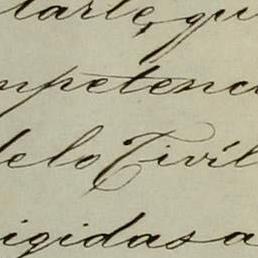 tarle, qu
mpetenc
delo Civil
igidas a